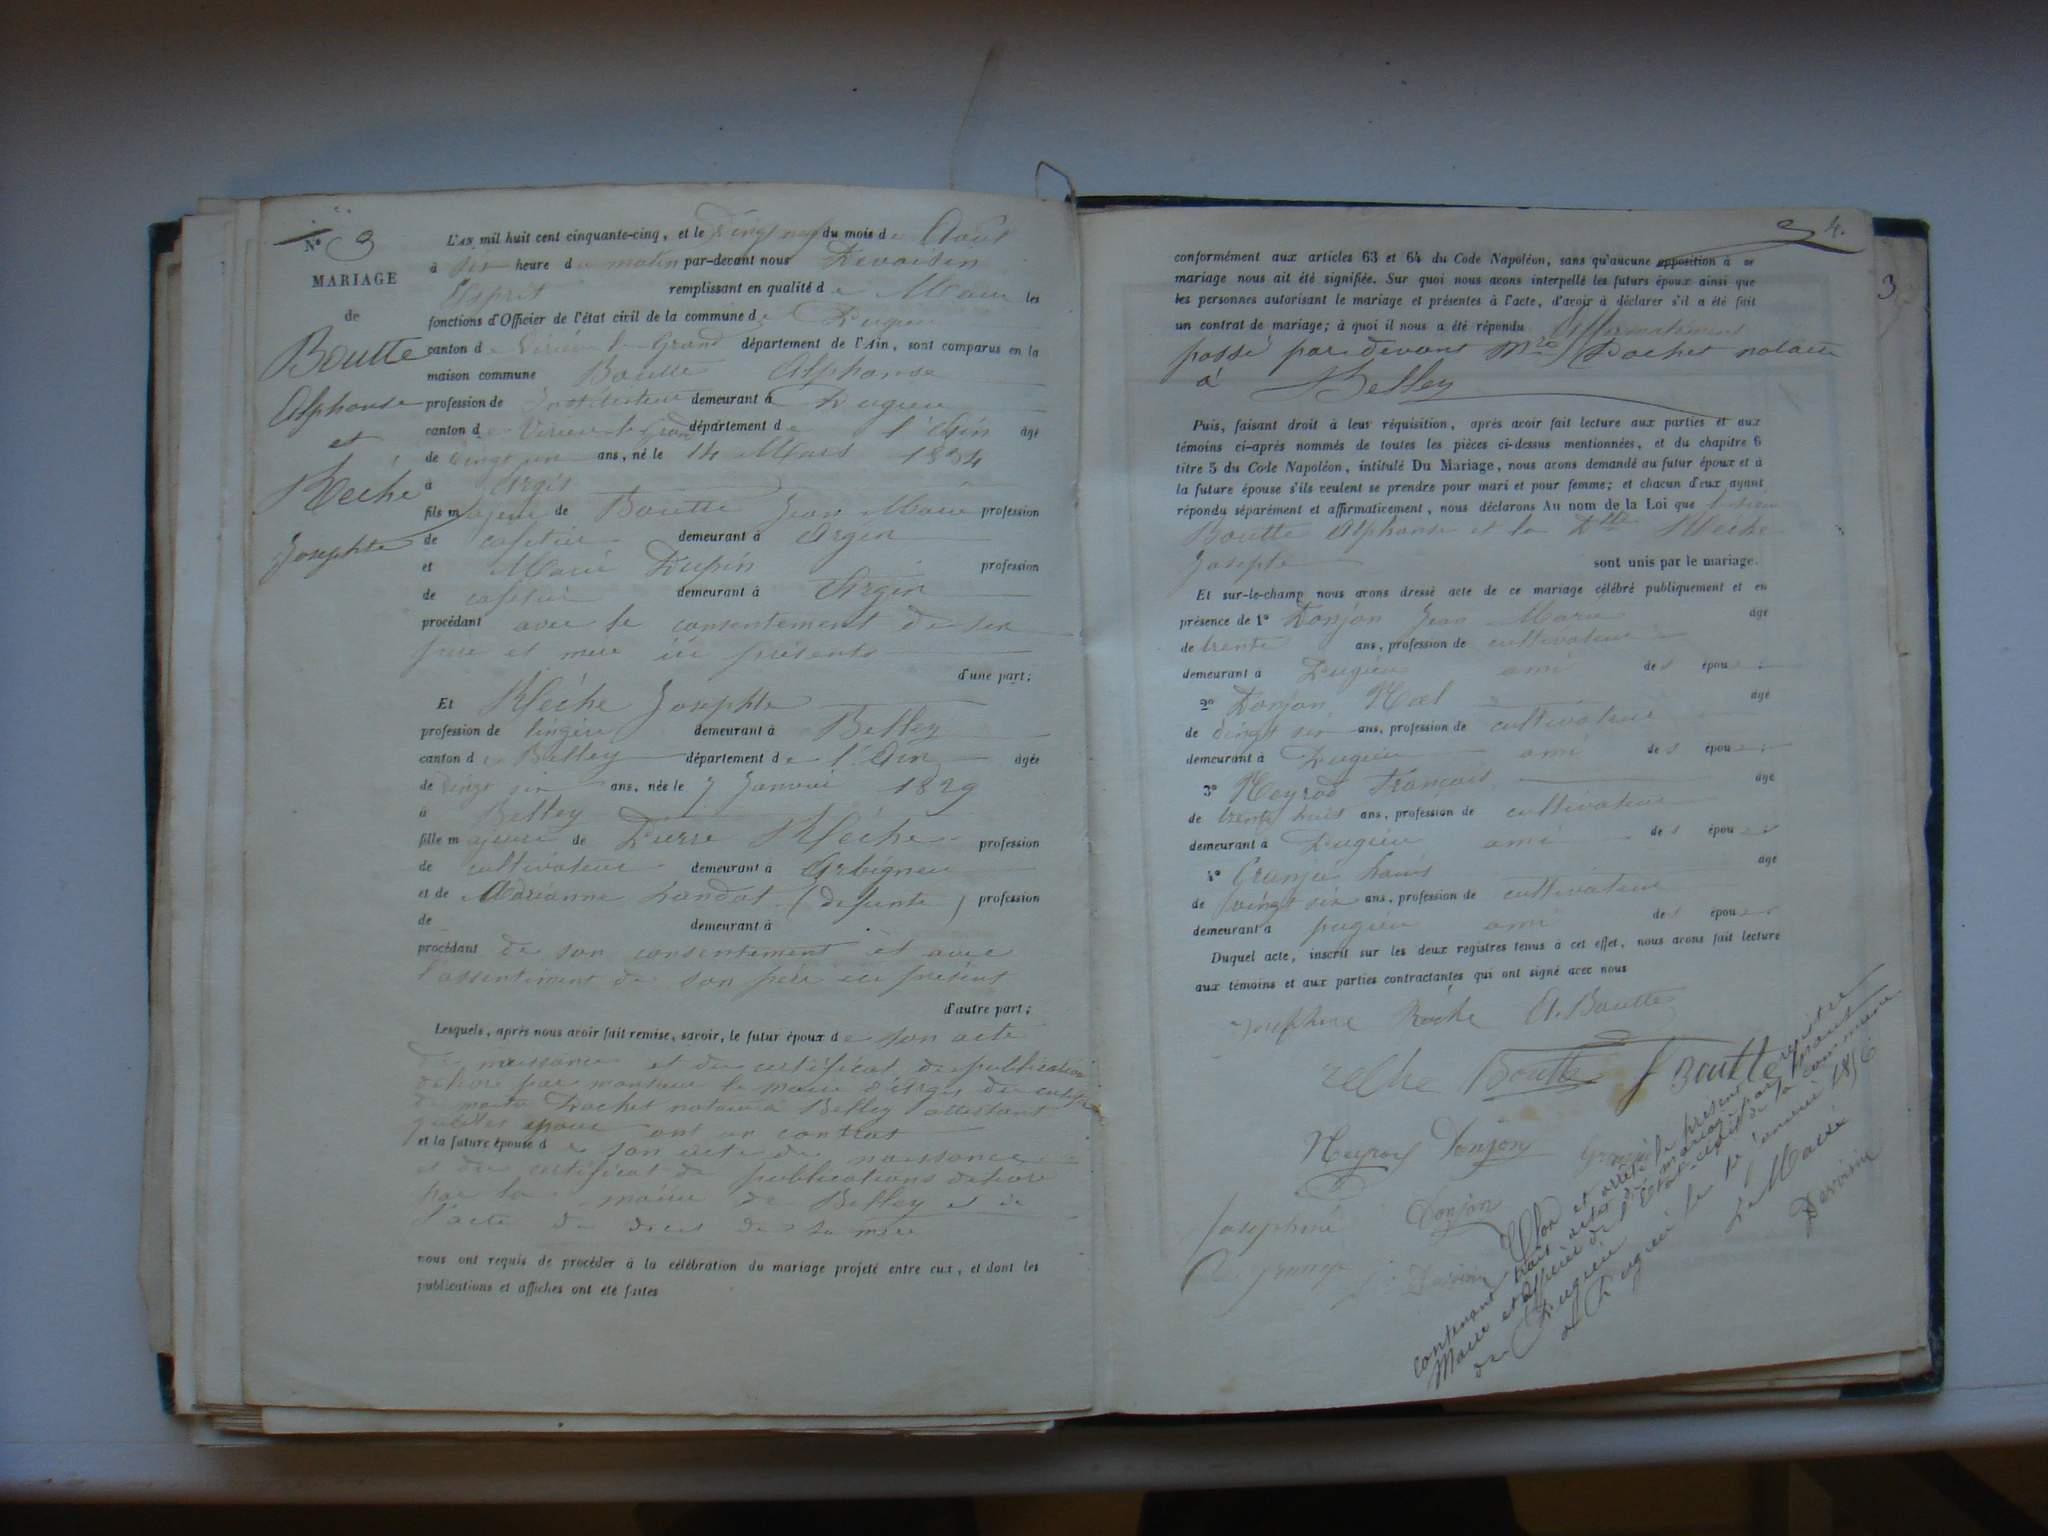 N° 3
MARIAGE
de
Boutte
Alphonse
et
Reche
Josephte
L'AN mil huit cent cinquante-cinq, et le vingt neuf du mois d'Août
à dix heure du matin par-devant nous Devoisin
Esprit remplissant en qualité de Maire les
fonctions d'Officier de l'état civil de la commune de Pugieu
canton de Virieu le Grand département de l'Ain, sont comparus en la
maison commune Boutte Alphonse
profession de Instituteur demeurant à Pugieu
canton de Virieu le Grand département de l'Ain âgé
de vingt un ans, né le 14 Mars 1834
à Argis
fils majeur de Boutte Jean Marie profession
de cafetier demeurant à Argis
et Marie Dupin profession
de cafetier demeurant à Argis
procédant avec le consentement de ses
père et mère ici présents
d'une part;
Et Réche Josephte
profession de lingère demeurant à Belley
canton de Belley département de l'Ain âgée
de vingt six ans, née le 7 Janvier 1829
à Belley
fille majeure de Pierre Réche profession
de cultivateur demeurant à Arbignieu
et de Adrianne Landot (défunte) profession
de demeurant à
procédant de son consentement et avec
l'assentiment de son père ici présent
d'autre part;
Lesquels, après nous avoir fait remise, savoir, le futur époux de son acte
de naissance et du certificat de publication
délivré par monsieur le maire d'Argis du certificat
de maitre Trochet notaire à Belley attestant
qu'ils ont un contrat
et la future épouse de son acte de naissance
et du certificat de publications délivré
par la mairie de Belley et de
l'acte de décès de sa mère
nous ont requis de procéder à la célébration du mariage projeté entre eux, et dont les
publications et affiches ont été faites
4.
3
conformément aux articles 63 et 64 du Code Napoléon, sans qu'aucune opposition à ce
mariage nous ait été signifiée. Sur quoi nous avons interpellé les futurs époux ainsi que
les personnes autorisant le mariage et présentes à l'acte, d'avoir à déclarer s'il a été fait
un contrat de mariage; à quoi il nous a été répondu affirmativement
passé par devant Mre Trochet notaire
à Belley
Puis, faisant droit à leur réquisition, après avoir fait lecture aux parties et aux
témoins ci-après nommés de toutes les pièces ci-dessus mentionnées, et du chapitre 6
titre 5 du Code Napoléon, intitulé Du Mariage, nous avons demandé au futur époux et à
la future épouse s'ils veulent se prendre pour mari et pour femme; et chacun d'eux ayant
répondu séparément et affirmativement, nous déclarons Au nom de la Loi que le sieur
Boutte Alphonse et la Dlle Reche
Josephte sont unis par le mariage.
Et sur-le-champ nous avons dressé acte de ce mariage célébré publiquement et en
présence de 1° Donjon Jean Marie âgé
de trente ans, profession de cultivateur
demeurant à Pugieu ami des époux
2° Donjon Noel âgé
de vingt six ans, profession de cultivateur
demeurant à Pugieu ami des époux
3° Neyrod Francois âgé
de trente huit ans, profession de cultivateur
demeurant à Pugieu ami des époux
4° Granjé Louis âgé
de vingt six ans, profession de cultivateur
demeurant à Pugieu ami des époux
Duquel acte, inscrit sur les deux registres tenus à cet effet, nous avons fait lecture
aux témoins et aux parties contractantes qui ont signé avec nous
Josephine Réche A. Boutte
reche Boutte J Boutte
Neyrod Donjon
Josephine Donjon
Clos et arrêté le présent registre
contenant trois actes de mariage par nous
Maire et Officier de l'Etat-civil de la commune
de Pugieu
à Pugieu le 1er janvier 1856
Le Maire
Devoisin